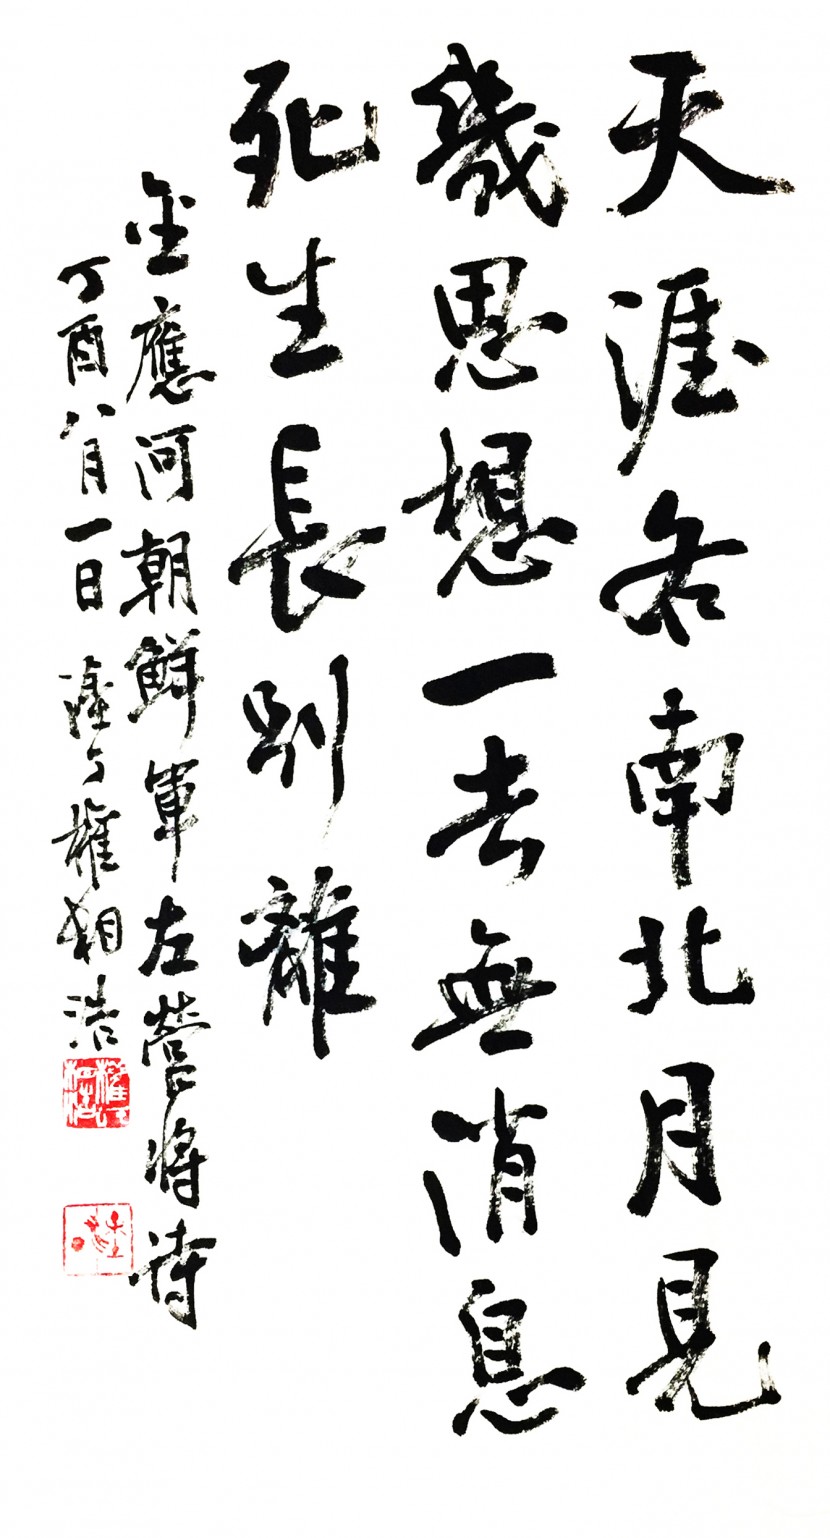 天涯各南北月見
幾思想一去無消息
死生長別離
金應河朝鮮軍左營將詩
丁酉八月一日 權相浩